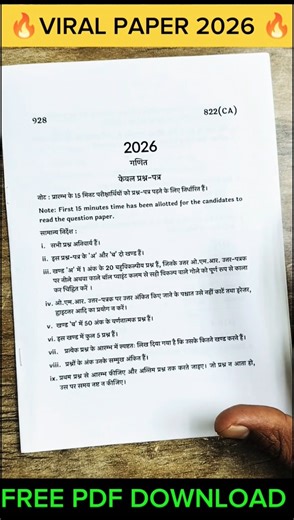 🔥VIRAL PAPER 2026🔥
928
822(CA)
2026
गणित
केवल प्रश्न-पत्र
नोट : प्रारम्भ के 15 मिनट परीक्षार्थियों को प्रश्न-पत्र पढ़ने के लिए निर्धारित हैं।
Note: First 15 minutes time has been allotted for the candidates to
read the question paper.
सामान्य निर्देश :
i. सभी प्रश्न अनिवार्य हैं।
ii. इस प्रश्न-पत्र के 'अ' और 'ब' दो खण्ड हैं।
iii. खण्ड 'अ' में 1 अंक के 20 बहुविकल्पीय प्रश्न हैं, जिनके उत्तर ओ.एम.आर. उत्तर-पत्रक
पर नीले अथवा काले बॉल प्वाइंट कलम से सही विकल्प वाले गोले को पूर्ण रूप से काला
कर चिह्नित करें ।
iv. ओ.एम.आर. उत्तर-पत्रक पर उत्तर अंकित किए जाने के पश्चात उसे नहीं काटें तथा इरेजर,
ह्वाइटनर आदि का प्रयोग न करें।
v. खण्ड 'ब' में 50 अंक के वर्णनात्मक प्रश्न हैं।
vi. इस खण्ड में कुल 5 प्रश्न हैं।
vii. प्रत्येक प्रश्न के प्रारम्भ में स्पष्टतः लिख दिया गया है कि उसके कितने खण्ड करने हैं।
viii. प्रश्नों के अंक उनके सम्मुख अंकित हैं।
ix. प्रथम प्रश्न से आरम्भ कीजिए और अन्तिम प्रश्न तक करते जाइए। जो प्रश्न न आता हो,
उस पर समय नष्ट न कीजिए।
FREE PDF DOWNLOAD